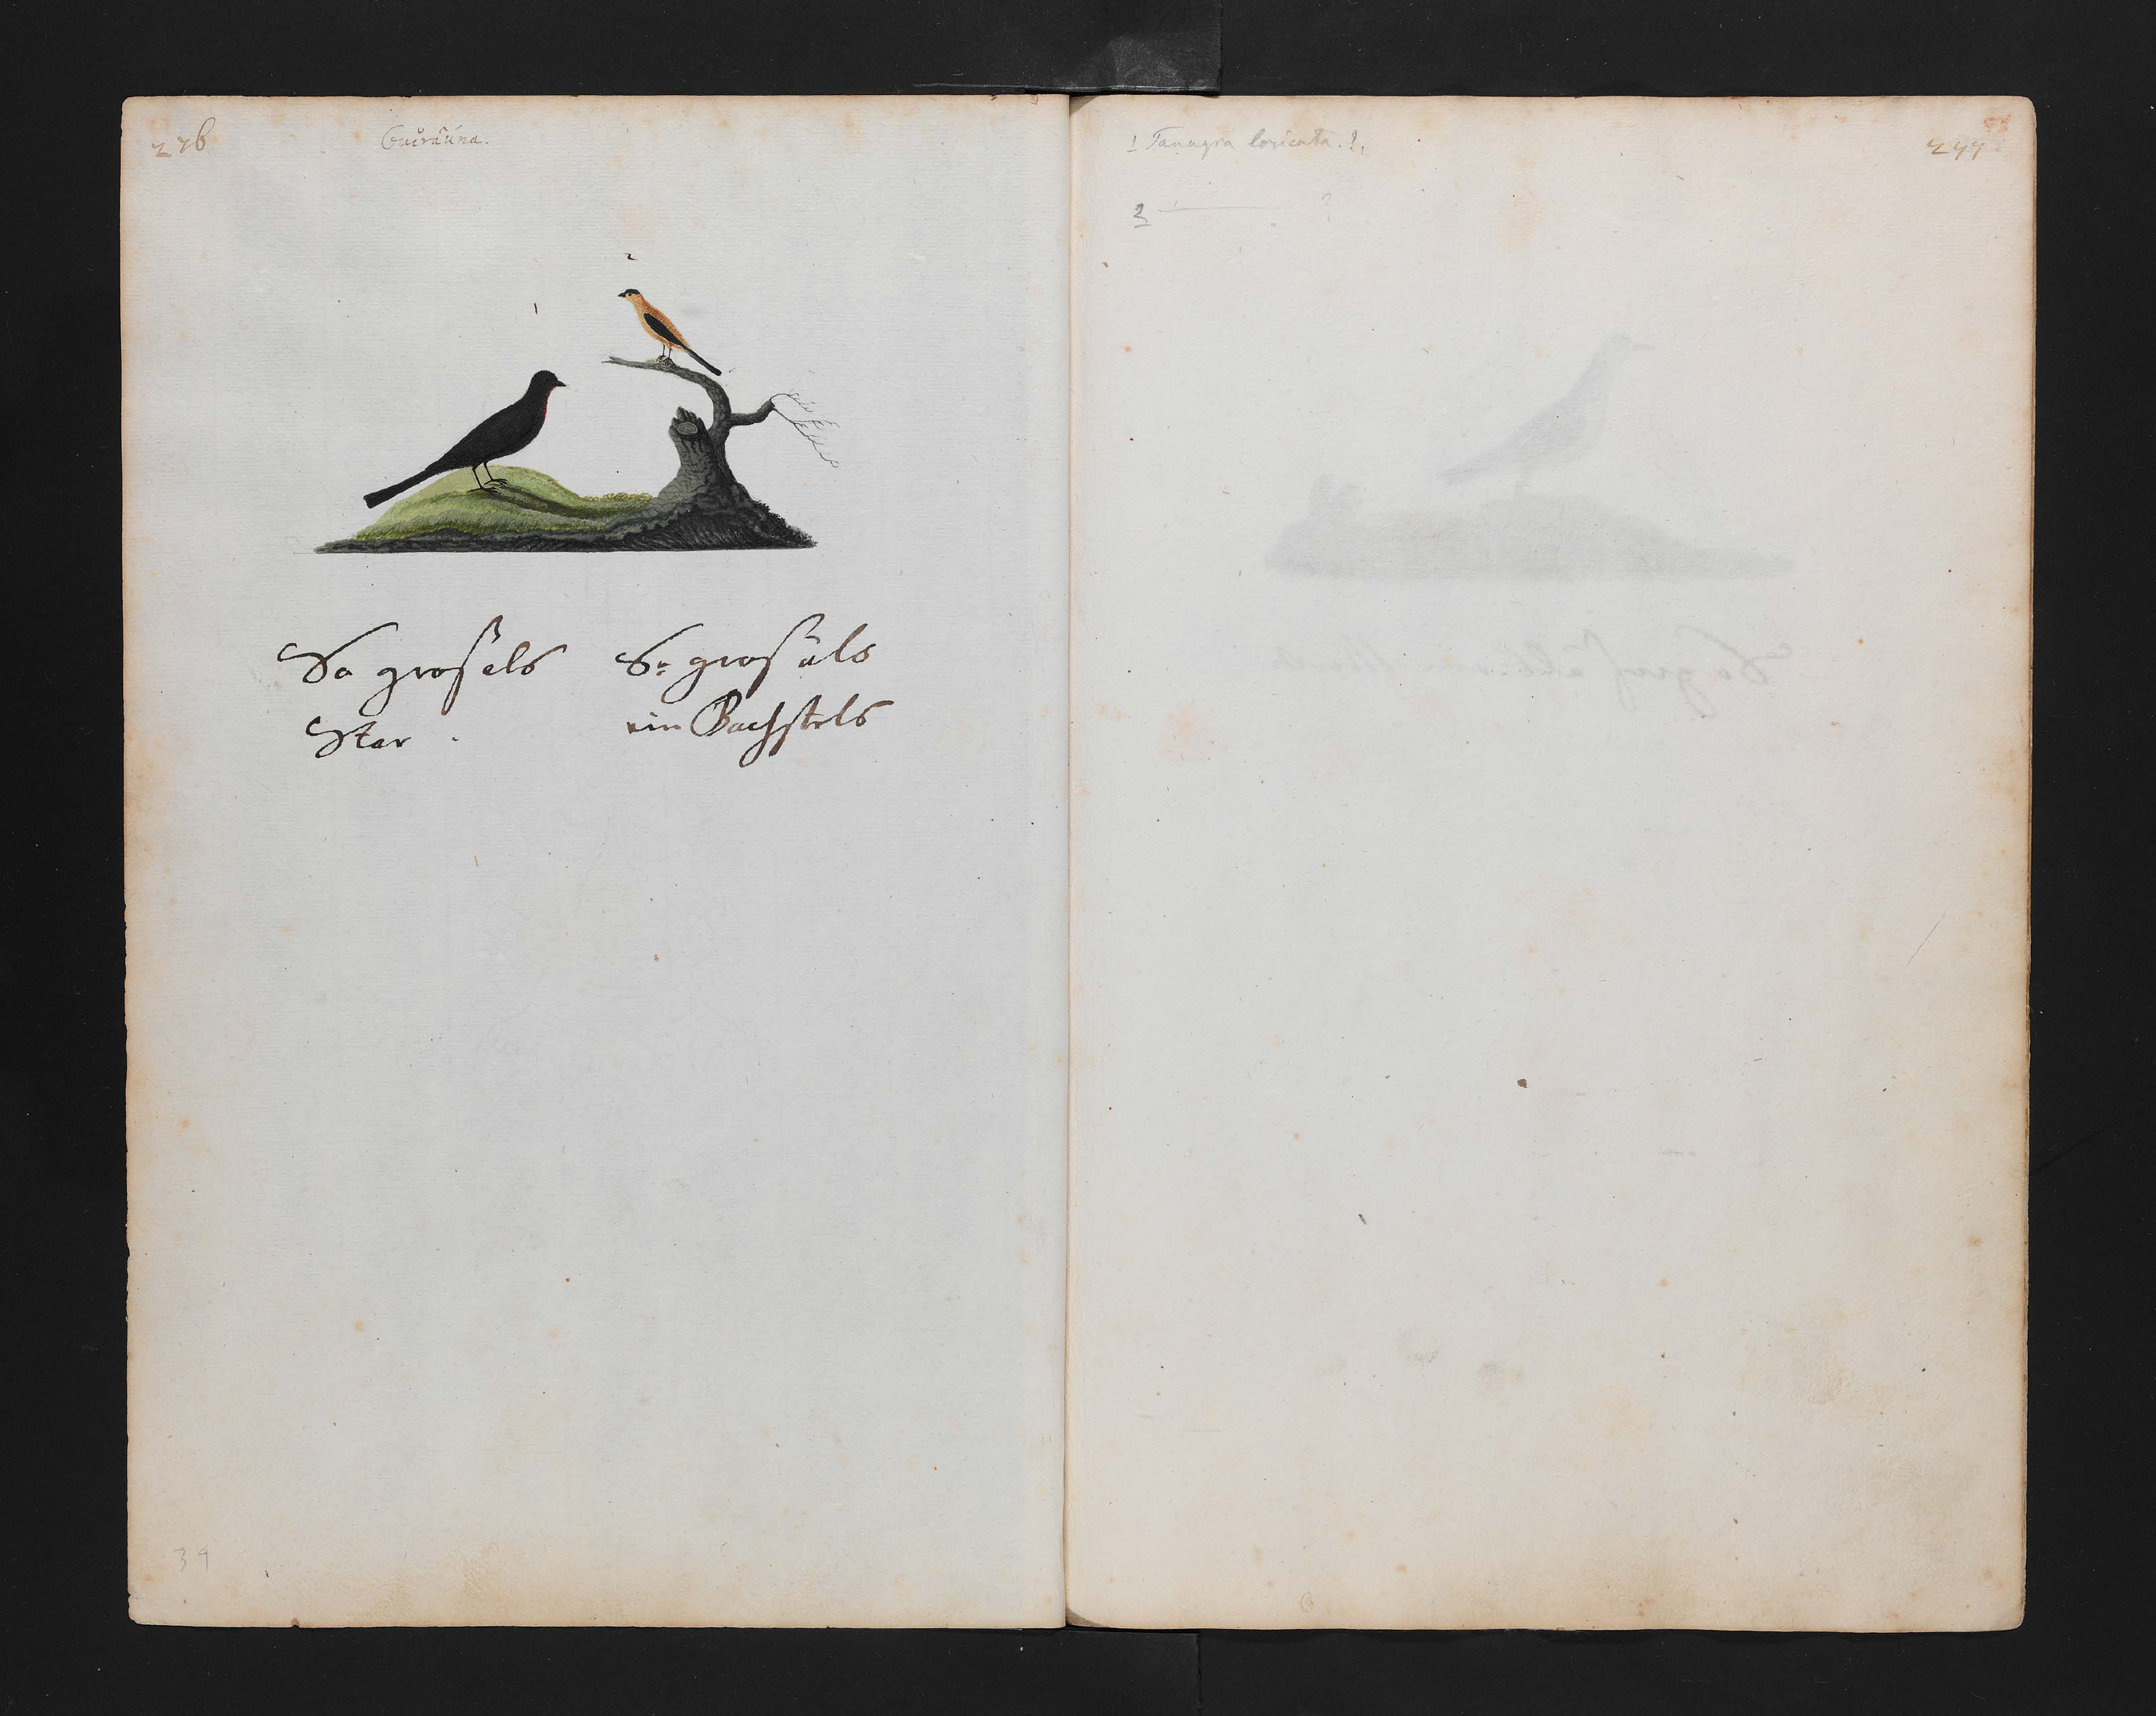 276
Guiraúna.
1
2
So groß als
Star .
So groß als
ein Bachstels
39
1 Tanagra loricata. ?.
2 ———— ?
277